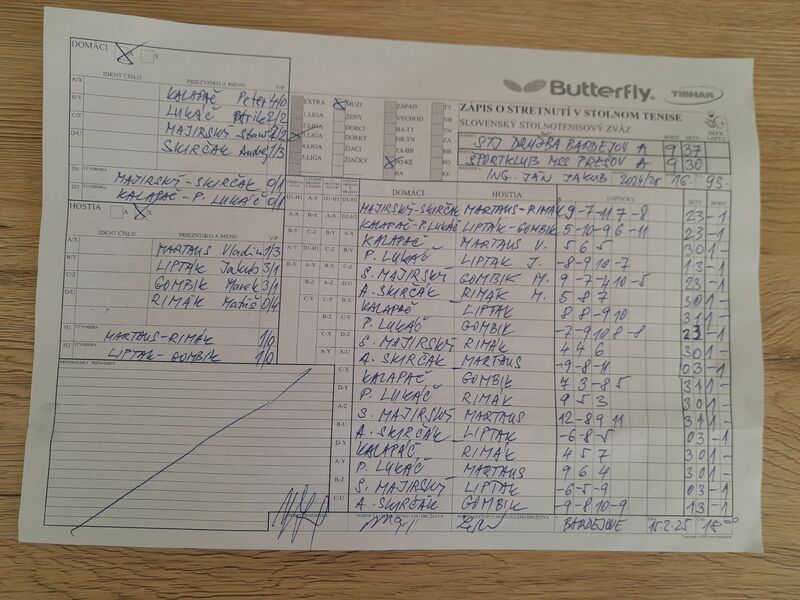 DOMÁCI A X
IDENT. ČÍSLO PRIEZVISKO A MENO V/P
A/X KALAPAČ Peter 4/0
B/Y LUKÁČ 2/2
C/Z MAJIRSKÝ 2/2
D/U SKIRČÁK Andrej 1/3
D1 ŠTVORHRA MAJIRSKÝ-SKIRČÁK 0/1
D2 KALAPAČ-P. LUKÁČ 0/1
HOSTIA A X
IDENT. ČÍSLO PRIEZVISKO A MENO V/P
A/X MARTAUS Vladimír 1/3
B/Y LIPTÁK Jakub 3/1
C/Z GOMBIK Marek 3/1
D/U RIMÁK Matúš 0/4
H1 ŠTVORHRA MARTAUS-RIMÁK 1/0
H2 ŠTVORHRA LIPTÁK-GOMBIK 1/0
PRIPOMIENKY, POZNÁMKY
Butterfly TIBHAR
EXTRA MUŽI ZÁPAD TT
1.LIGA ŽENY VÝCHOD TN
2.LIGA DORCI BA-TT NR
3.LIGA DORKY NR-TN ZA
4.LIGA ŽIACI ZA-BB BB
5.LIGA ŽIAČKY PO-KE PO
BA KE
ZÁPIS O STRETNUTÍ V STOLNOM TENISE
SLOVENSKÝ STOLNOTENISOVÝ ZVÄZ
BODY SETY
STJ DRUŽBA BARDEJOV A 9 37
ŠPORTKLUB MCS PREŠOV A 9 30
ING. JÁN JAKUB 2024/25 16. 93.
DOMÁCI HOSTIA LOPTIČKY SETY BODY
MAJIRSKÝ-SKIRČÁK MARTAUS-RIMÁK 9 -7 -11 7 -8 2 3 -1
KALAPAČ-P.LUKÁČ LIPTÁK-GOMBIK 5 -10 -9 6 -11 2 3 -1
KALAPAČ MARTAUS V. 5 6 5 3 0 1 -
P. LUKÁČ LIPTÁK J. -8 -9 10 -7 1 3 -1
S. MAJIRSKÝ GOMBIK M. 9 -7 -4 10 -5 2 3 -1
A. SKIRČÁK RIMÁK M. 5 8 7 3 0 1 -
KALAPAČ LIPTÁK 8 8 -9 10 3 1 1 -
P. LUKÁČ GOMBIK -7 -9 10 8 -8 2 3 -1
S. MAJIRSKÝ RIMÁK 4 7 6 3 0 1 -
A. SKIRČÁK MARTAUS -9 -8 -11 0 3 -1
KALAPAČ GOMBIK 7 3 -8 5 3 1 1 -
P. LUKÁČ RIMÁK 9 5 3 3 0 1 -
S. MAJIRSKÝ MARTAUS 12 -8 9 11 3 1 1 -
A. SKIRČÁK LIPTÁK -6 -8 -5 0 3 -1
KALAPAČ RIMÁK 4 5 7 3 0 1 -
P. LUKÁČ MARTAUS 9 6 4 3 0 1 -
S. MAJIRSKÝ LIPTÁK -6 -5 -9 0 3 -1
A. SKIRČÁK GOMBIK -9 -8 10 -9 1 3 -1
BARDEJOVE 15.2.25 15:00